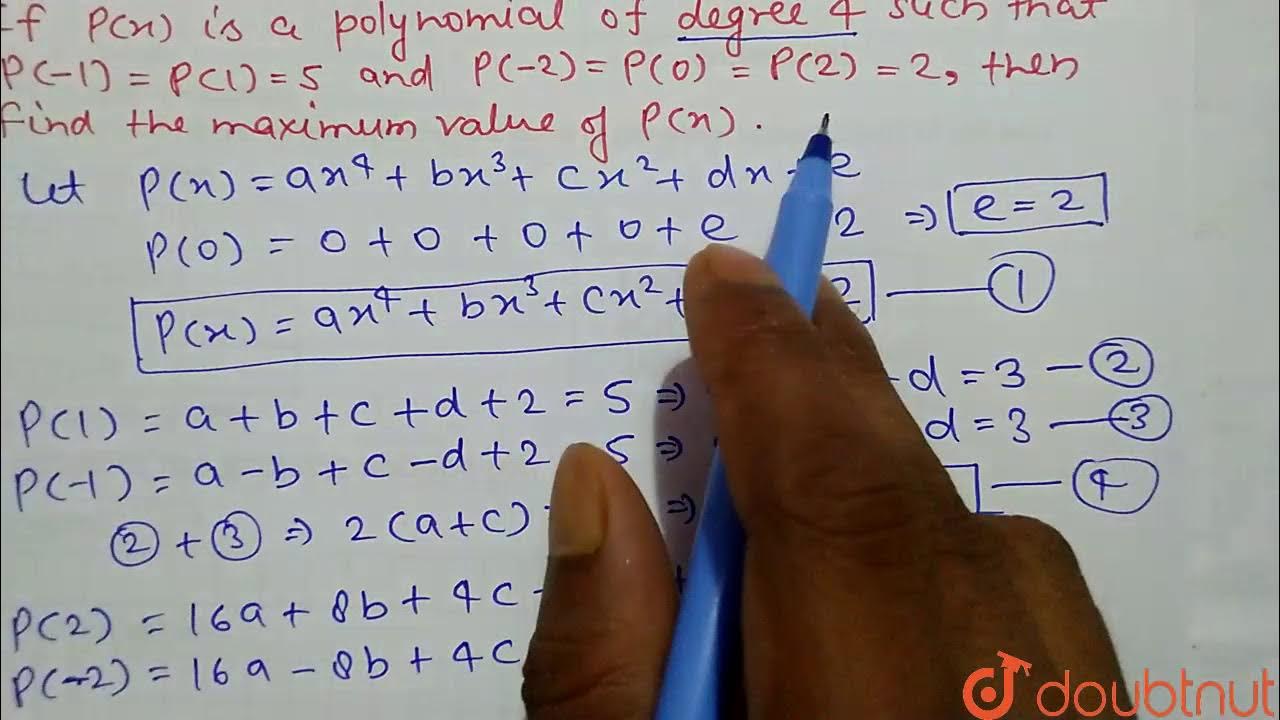 If P(x) is a polynomial of degree 4 such that
P(-1) = P(1) = 5 and P(-2) = P(0) = P(2) = 2, then
find the maximum value of P(x).
Let P(x) = ax⁴ + bx³ + cx² + dx + e
P(0) = 0 + 0 + 0 + 0 + e 2 ⇒ e = 2
P(x) = ax⁴ + bx³ + cx² + 2 — ①
P(1) = a + b + c + d + 2 = 5 ⇒ d = 3 — ②
P(-1) = a - b + c - d + 2 5 ⇒ d = 3 — ③
② + ③ ⇒ 2(a+c) ⇒ — ④
P(2) = 16a + 8b + 4c
P(-2) = 16a - 8b + 4c
doubtnut